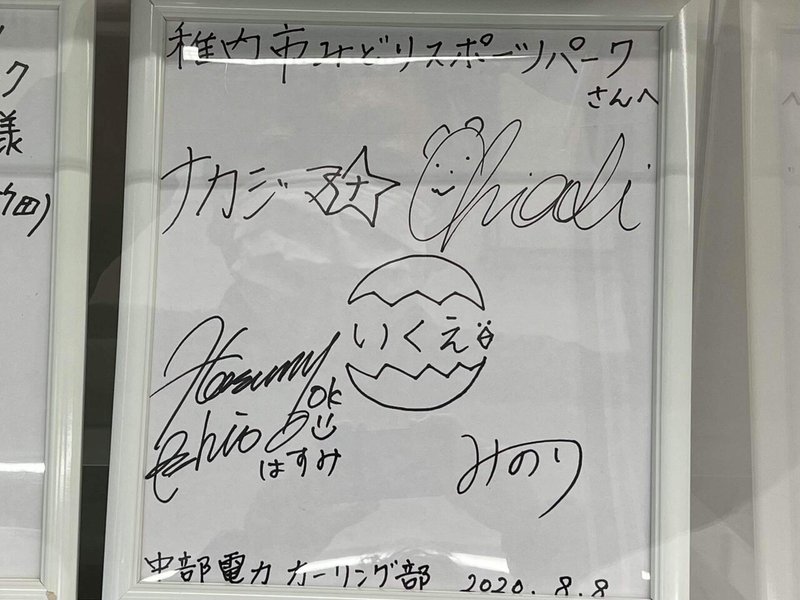 稚内市みどりスポーツパーク
さんへ
ナカジマ☆ナ
Chiaki
いくえ
Hasumi
Ishigooka
はすみ
みのり
中部電力 カーリング部 2020.8.8
様